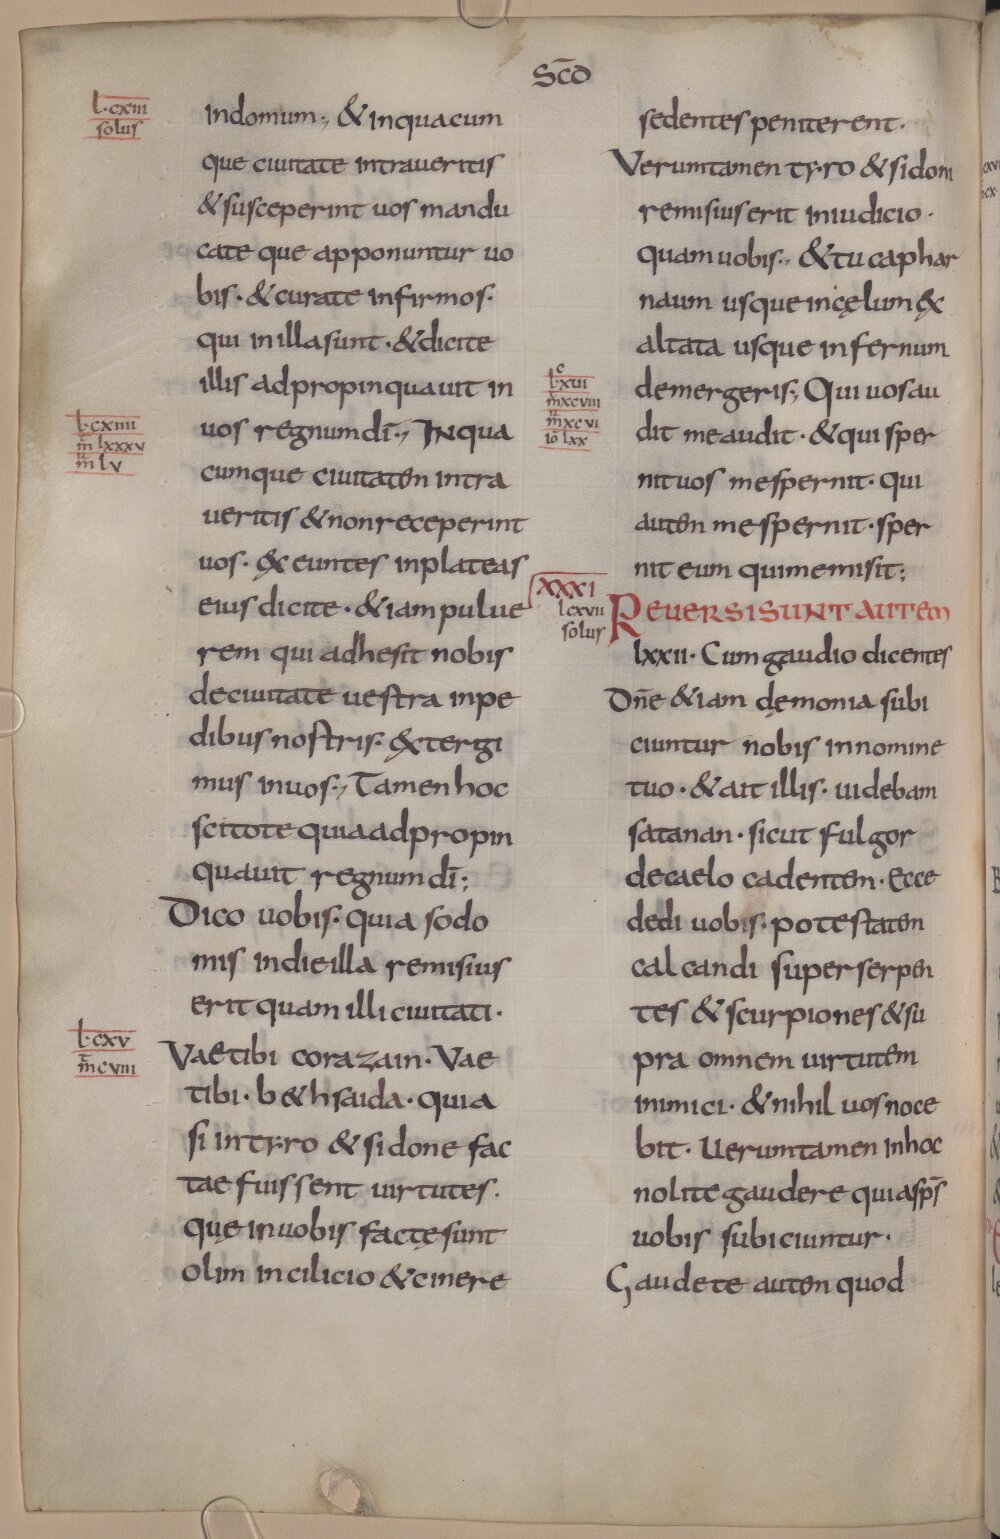 Sc̄d
l·cxiii
solus
indomum·, & inquacum
que ciuitate intraueritis
& susceperint uos mandu
cate que apponuntur uo
bis· & curate infirmos·
qui inillasunt· & dicite
illis adpropinquauit in
l·cxiiii
m̄ lxxxv
m̄ lv
uos regnum dī·, Inqua
cumque ciuitatem intra
ueritis & nonreceperint
uos· exeuntes inplateas
eius dicite· & iam pulue
rem qui adhesit nobis
deciuitate uestra inpe
dibus nostris· extergi
mus inuos·, Tamen hoc
scitote quiaadpropin
quauit regnum dī;
Dico uobis· quia sodo
mis indieilla remisius
erit quam illi ciuitati·
l·cxv
m̄cviii
Vae tibi corazain· Vae
tibi· b&hsaida· quia
si intyro & sidone fac
tae fuissent uirtutes·
quę inuobis factę sunt
olim incilicio & cinere
sedentes peniterent·
Veruntamen tyro & sidoni
remisius erit iniudicio·
quam uobis·, & tu caphar
naum usque incęlum ex
altata usque infernum
demergeris·, Qui uos au
l·xvi
m̄xcviii
m̄xcvi
iō lxx
dit me audit· & qui sper
nit uos me spernit· qui
autem me spernit· sper
nit eum qui me misit;
XXXI
lcxvii
solus
REUERSI SUNT AUTEM
lxxii· Cum gaudio dicentes
Dn̄e & iam dęmonia subi
ciuntur nobis innomine
tuo· & ait illis· uidebam
satanan· sicut fulgor
decaelo cadentem· Ecce
dedi uobis· potestatem
calcandi super serpen
tes & scurpiones & su
pra omnem uirtutem
inimici· & nihil uos noce
bit· Ueruntamen inhoc
nolite gaudere quia sp̄s
uobis subiciuntur·
Gaudete autem quod